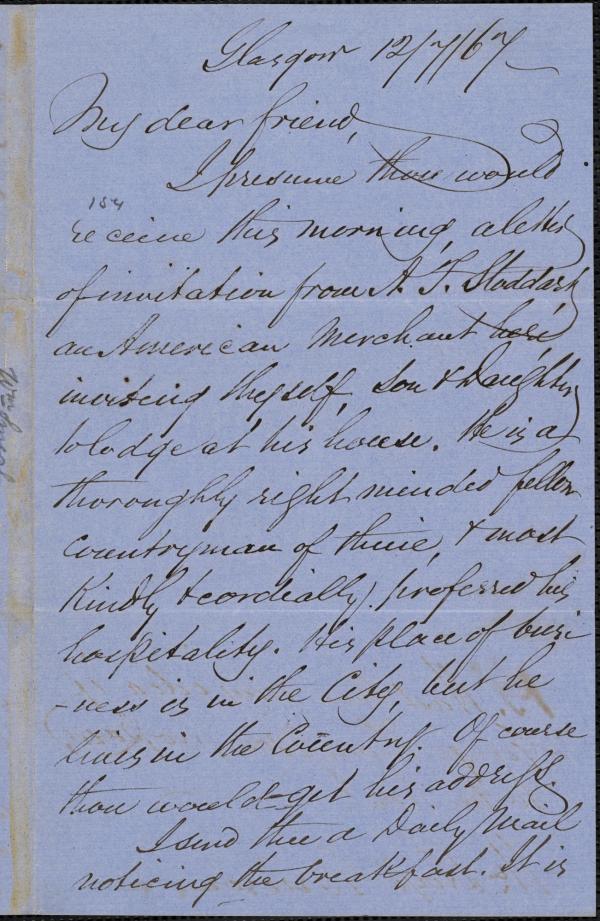 Glasgow 12/7/67
My dear friend,
I presume thou would
154
receive this morning, a letter
of invitation from A. F. Stoddard,
an American Merchant here,
inviting thyself, Son & Daughter,
to lodge at his house. He is a
thoroughly right minded fellow
Countryman of thine, & most
Kindly & cordially proffered his
hospitality. His place of busi
-ness is in the City, but he
lives in the Country. Of course
thou would get his address.
I send thee a Daily Mail
noticing the breakfast. It is